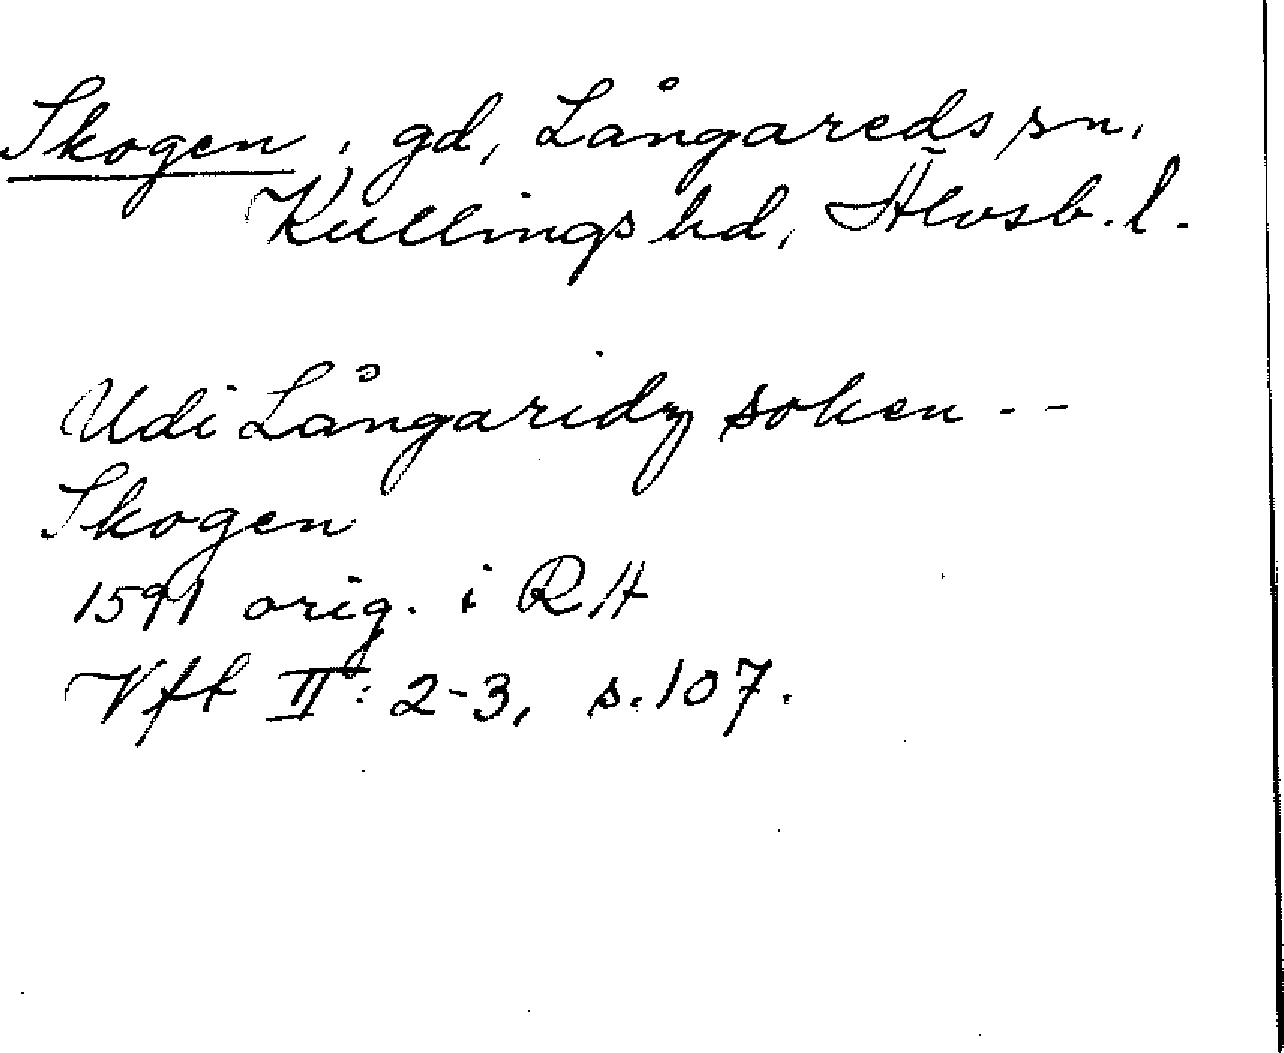 Skogen, gd, Långareds sn,
Kullings hd, Älvsb. l.
Udi Långaridz soken - -
Skogen
1591 orig. i RH
Vff II: 2-3, s. 107.